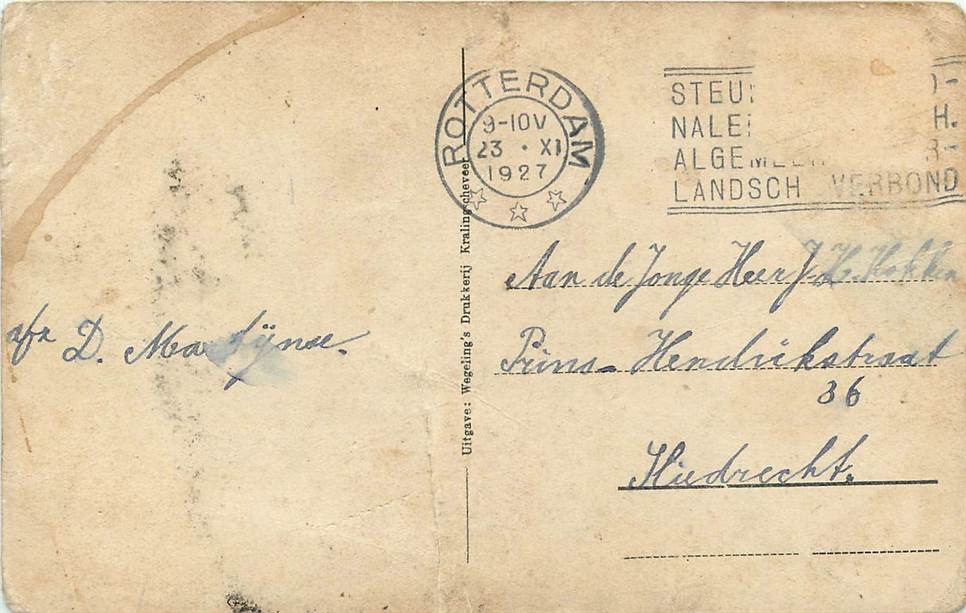 ROTTERDAM
9-10V
23 • XI
1927
STEU
NALE
H.
ALGEMEE
R-
LANDSCH VERBOND
Uitgave: Wegeling's Drukkerij Kralingscheveer
Aan de Jonge Heer J. H. Kokken
afz D. Martijnse.
Prins-Hendrikstraat
36
Sliedrecht.